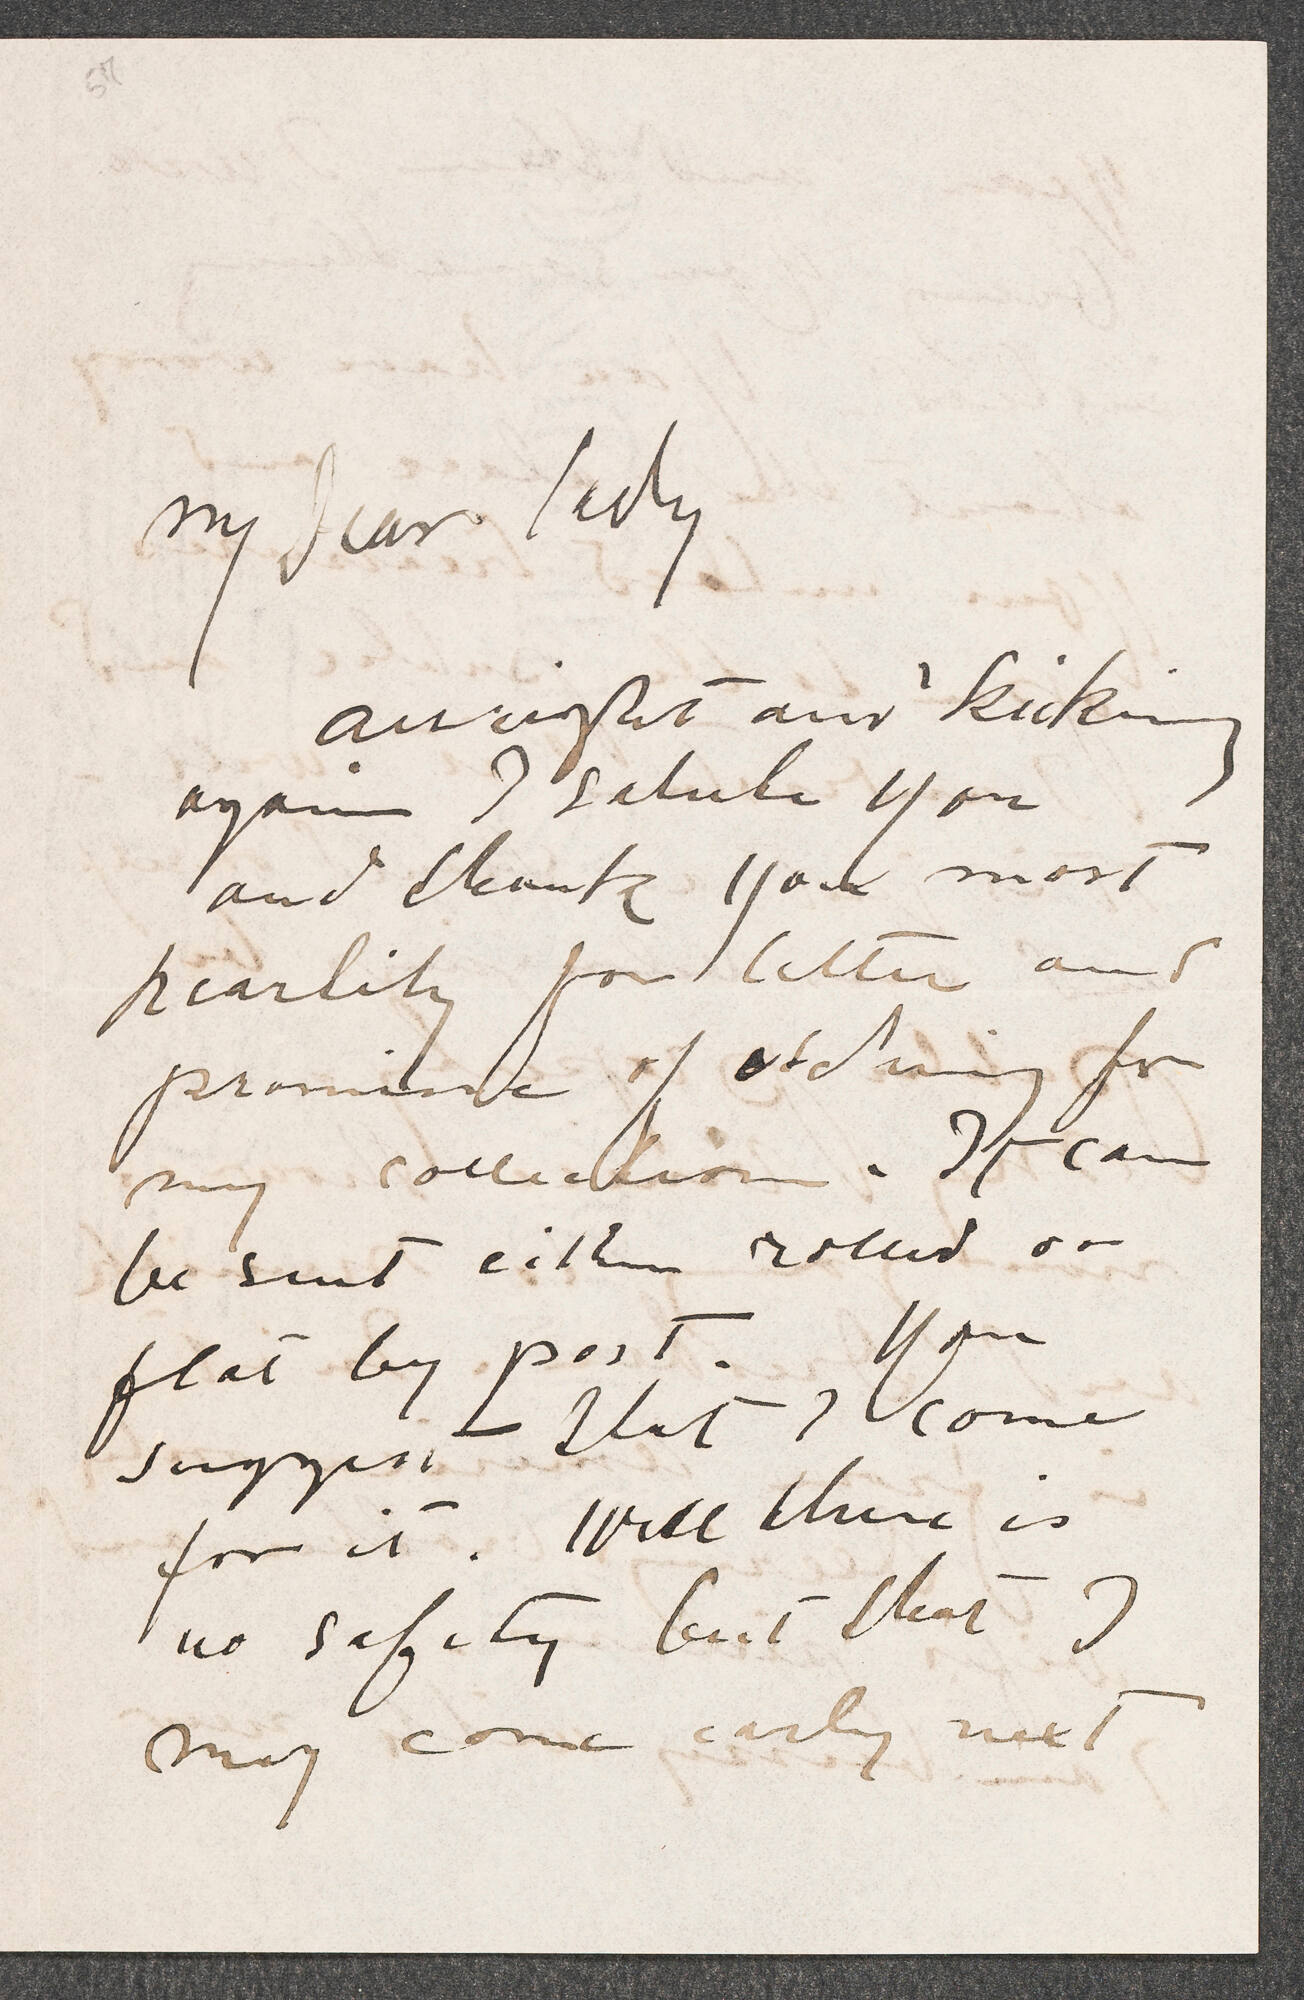 57
my dear lady
all right and 'kicking
again I salute you
and thank you most
heartily for letter and
promise of etching for
my collection. It can
be sent either rolled or
flat by post. You
suggest that I come
for it. Well there is
no safety but that I
may come early next